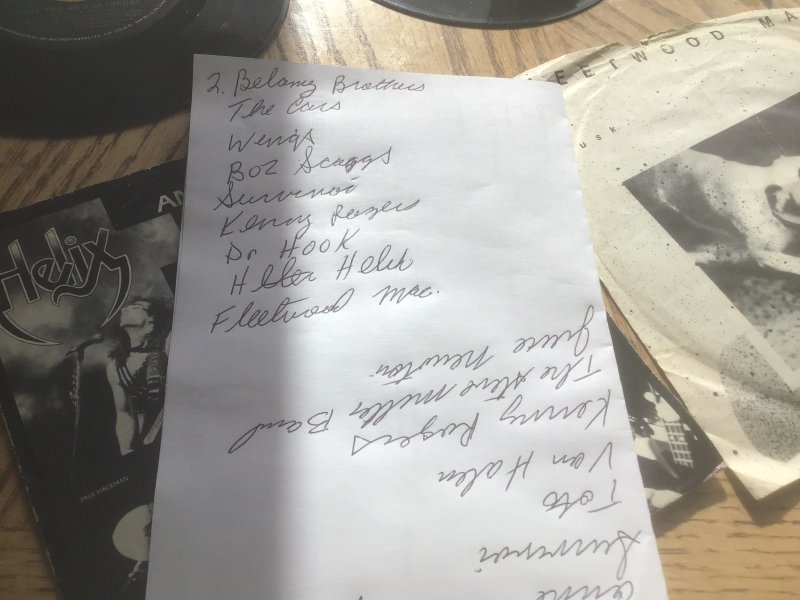 2. Belamy Brothers
The Cars
Wengs
Boz Scaggs
Survivor
Kenny Rogers
Dr HOOK
Helix
Fleetwood Mac.
Survivor
Toto
Van Halen
Kenny Rogers
The Steve Miller Band
Juice Newton
Helix
PAUL HACKMAN
FLEETWOOD MA
usk
AN